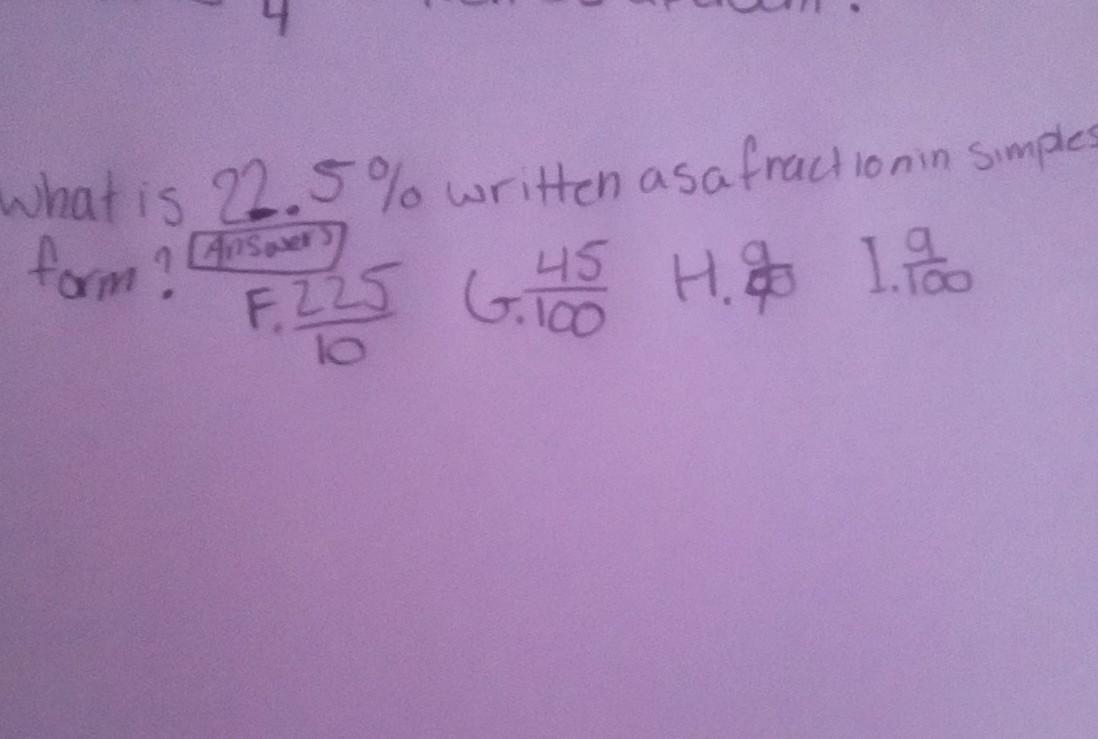 4
What is 22.5% written as a fraction in simples
form? Answers
F. 225/10 G. 45/100 H. 9/ I. 9/100